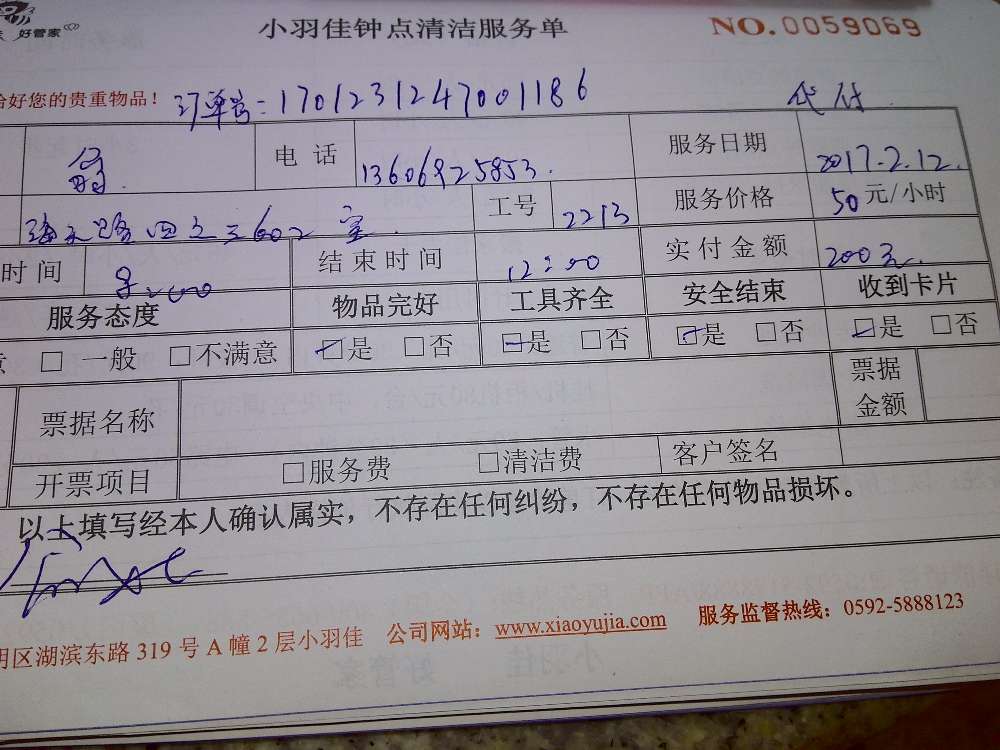 好管家 小羽佳钟点清洁服务单 NO.0059069
好您的贵重物品! 订单号:1701231247001186 代付
电话 13606925853. 服务日期 2017.2.12.
602室. 工号 2213 服务价格 50元/小时
时间 8:00 结束时间 12:00 实付金额 200元.
服务态度 物品完好 工具齐全 安全结束 收到卡片
□ 一般 □不满意 ☑是 □否 ☑是 □否 ☑是 □否 ☑是 □否
票据名称 票据金额
开票项目 □服务费 □清洁费 客户签名
以上填写经本人确认属实，不存在任何纠纷，不存在任何物品损坏。
明区湖滨东路 319 号 A 幢 2 层小羽佳 公司网站：www.xiaoyujia.com 服务监督热线：0592-5888123